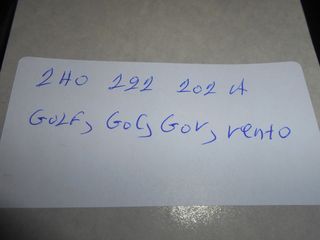 2H0 292 202 A
GOLF, GOL, GOV, vento